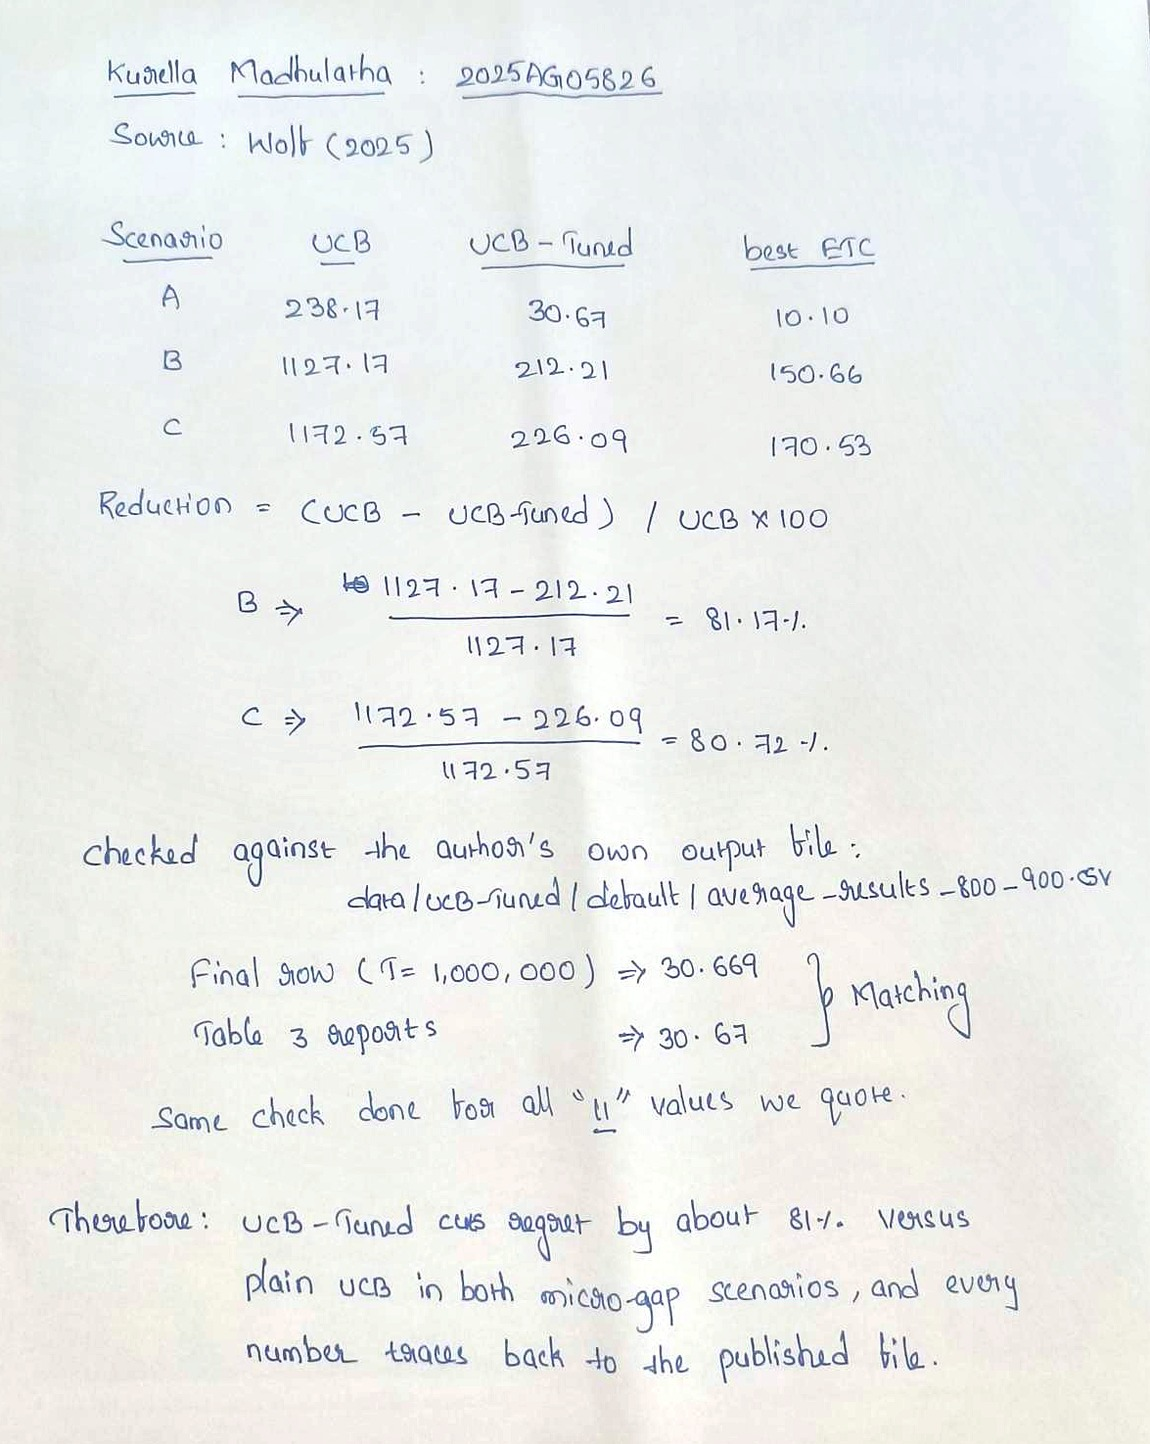 Kurella Madhulatha : 2025AG05826
Source : Wolf (2025)
Scenario UCB UCB-Tuned best ETC
A 238.17 30.67 10.10
B 1127.17 212.21 150.66
C 1172.57 226.09 170.53
Reduction = (UCB - UCB-Tuned) / UCB × 100
B ⇒ 1127.17 - 212.21
= 81.17%
1127.17
C ⇒ 1172.57 - 226.09
= 80.72%
1172.57
Checked against the author's own output file:
data/UCB-Tuned/default/average-results-800-900.csv
Final row (T= 1,000,000) ⇒ 30.669
} Matching
Table 3 reports ⇒ 30.67
Same check done for all "11" values we quote.
Therefore: UCB-Tuned cuts regret by about 81% versus
plain UCB in both micro-gap scenarios, and every
number traces back to the published file.